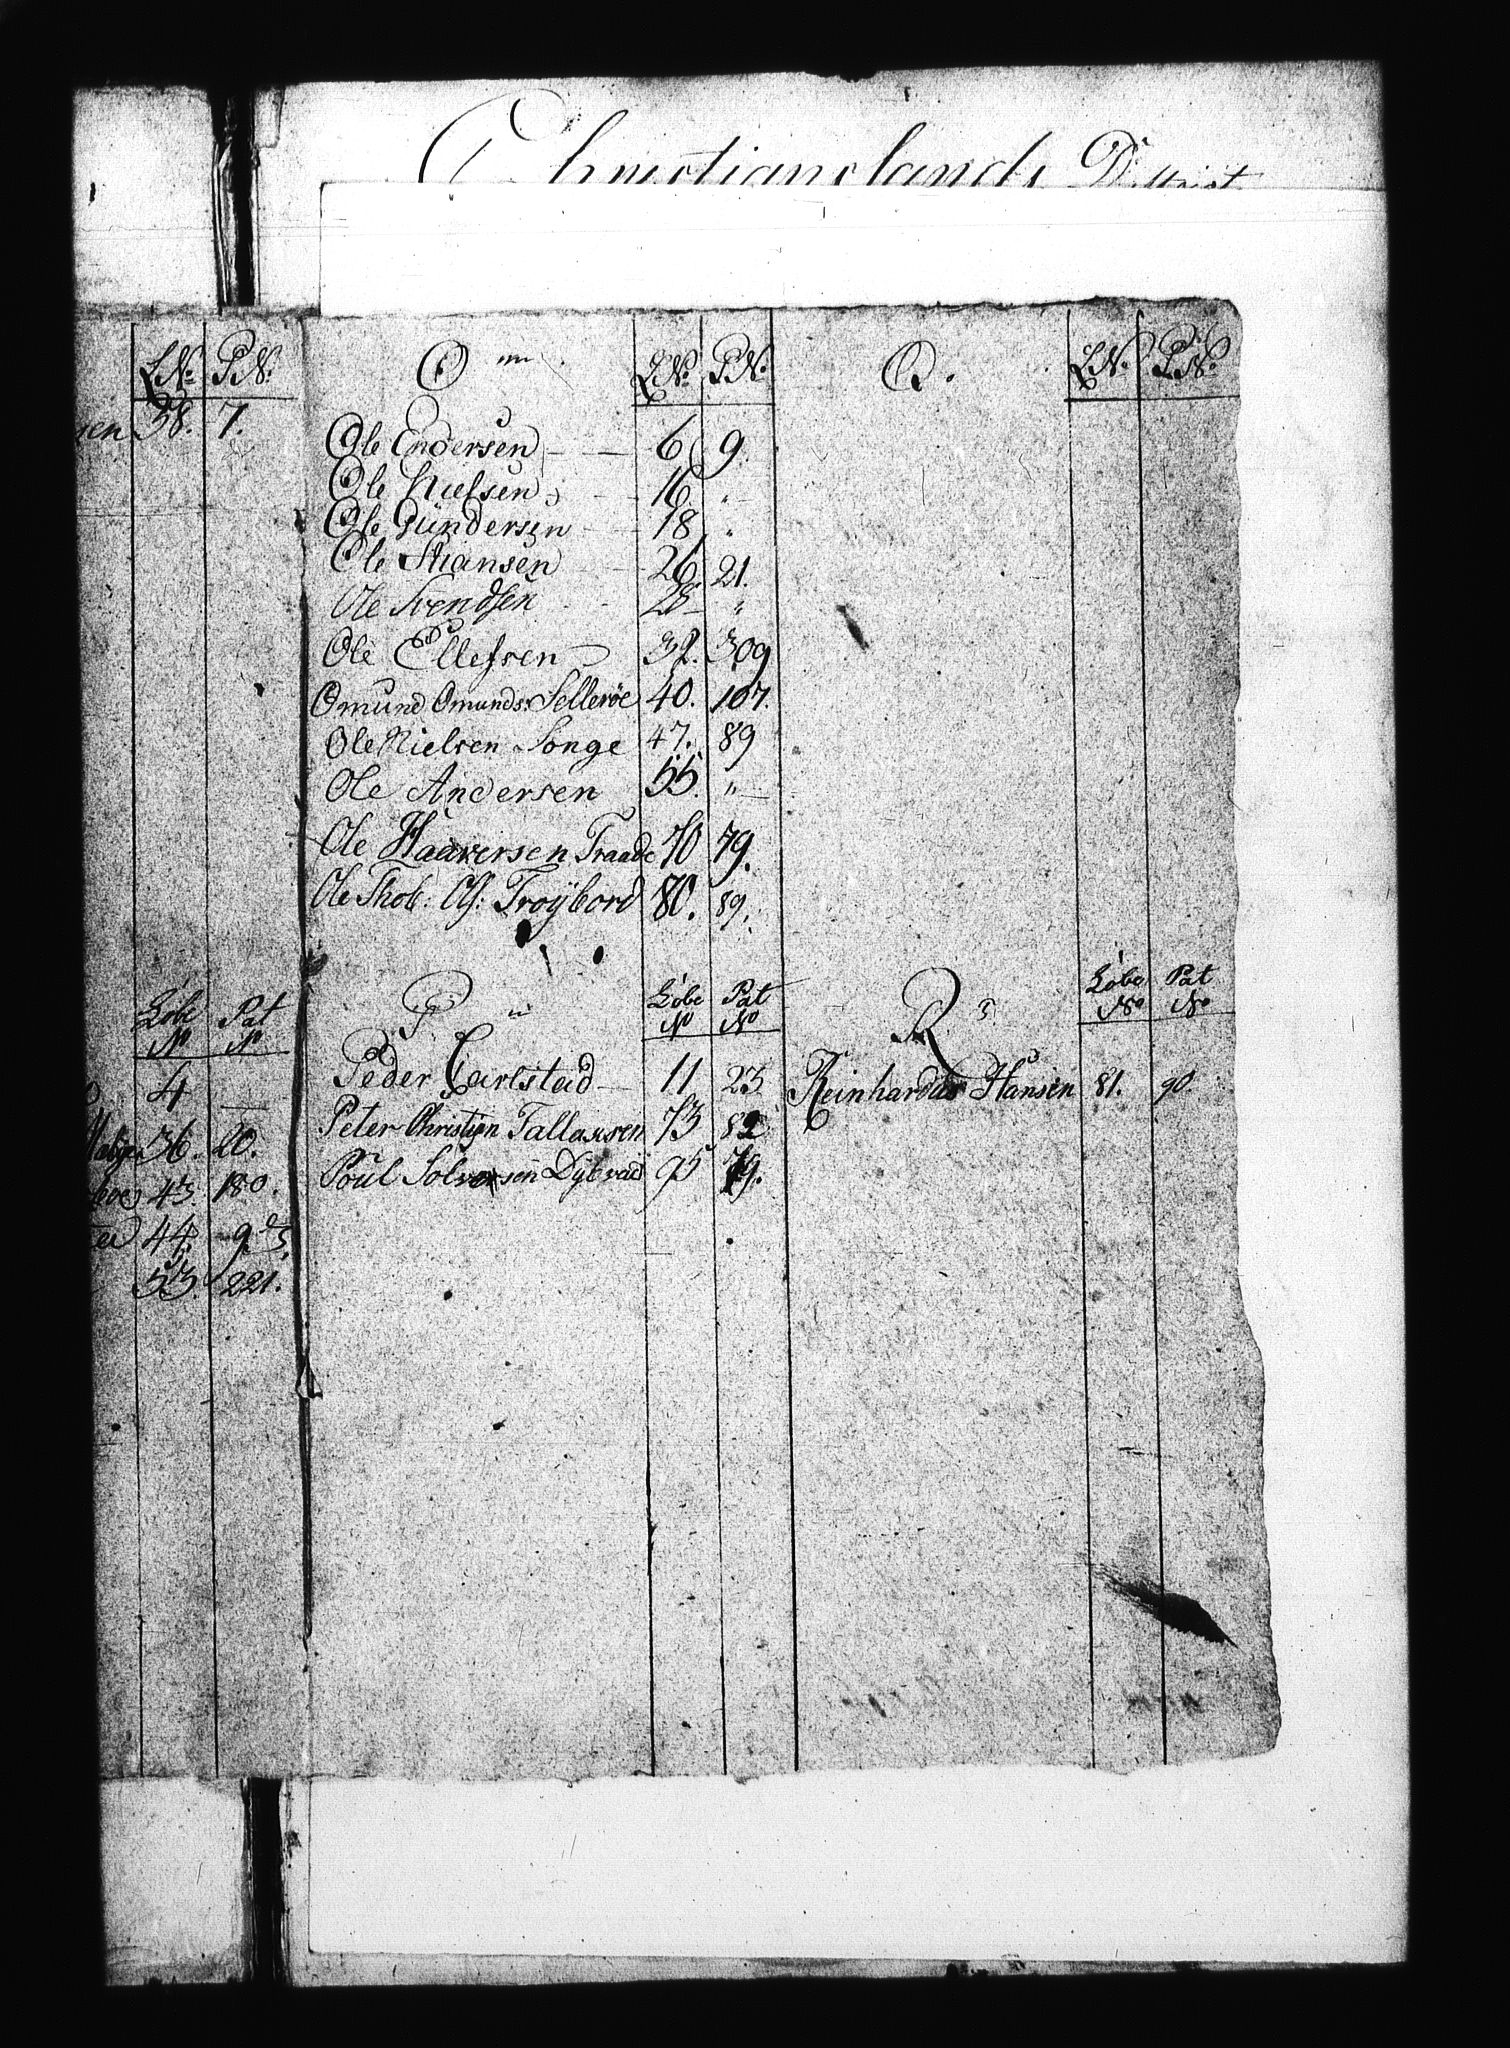 Christianslands District
L N: P N:
38. 7.
Løbe N Pat N
4 —
36. 20.
43. 180.
44
53. 221.
O L N: P N:
Ole Endersen 6 9.
Ole Nielsen 16 "
Ole Gündersen 18 "
Ole Stiansen 26 21.
Ole Svendsen 28 "
Ole Ellefsen 32. 309
Omund Omunds: Sellerøe 40. 107.
Ole Nielsen Songe 47. 89
Ole Andersen 55. "
Ole Haaversen Traade 70 79.
Ole Thob: Ols: Frøÿbord 80. 89.
P Løbe No Pat No
Peder Carlstad 11 23
Peter Christijn Tallaksen 73 82
Poül Solversen Dybvad 95 79.
Q. L N: P N:
R. Løbe No Pat No
Reinhardus Hansen 81. 90